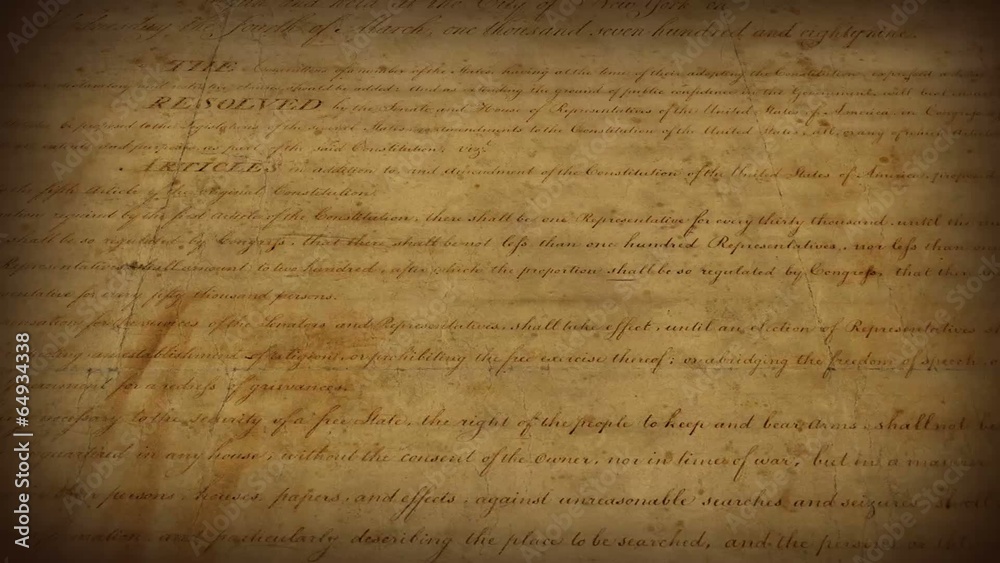 held at the City of New York on
the fourth of March, one thousand seven hundred and eighty nine.
THE Conventions of a number of the States, having at the time of their adopting the Constitution, expressed a
added: And as extending the ground of public confidence in the Government, will best
RESOLVED by the Senate and House of Representatives of the United States of America, in Congress
be proposed to the Legislatures of the several States, as amendments to the Constitution of the United States, all, or any of which Articles
and purposes, as part of the said Constitution; viz.
ARTICLES in addition to, and Amendment of the Constitution of the United States of America, propos
the fifth Article of the original Constitution.
required by the first article of the Constitution, there shall be one Representative for every thirty thousand, until the
shall be so regulated by Congress, that there shall be not less than one hundred Representatives, nor less than one
Representatives shall amount to two hundred, after which the proportion shall be so regulated by Congress, that there
for every fifty thousand persons.
for the services of the Senators and Representatives, shall take effect, until an election of Representatives
an establishment of religion, or prohibiting the free exercise thereof; or abridging the freedom of speech,
for a redress of grievances.
necessary to the security of a free State, the right of the people to keep and bear Arms, shall not be
quartered in any house, without the consent of the Owner, nor in time of war, but in a manner
their persons, houses, papers, and effects, against unreasonable searches and seizures, shall
and particularly describing the place to be searched, and the persons or
Adobe Stock | #64934338
Adobe Stock